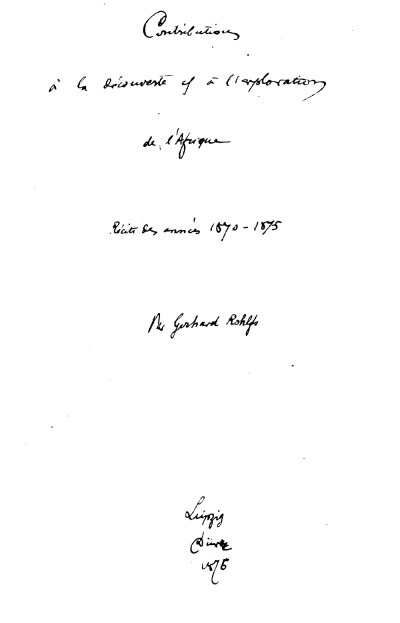 Contributions
à la découverte et à l'exploration
de l'Afrique
Récits des années 1870-1875
Par Gerhard Rohlfs
Leipzig
Dürr
1876